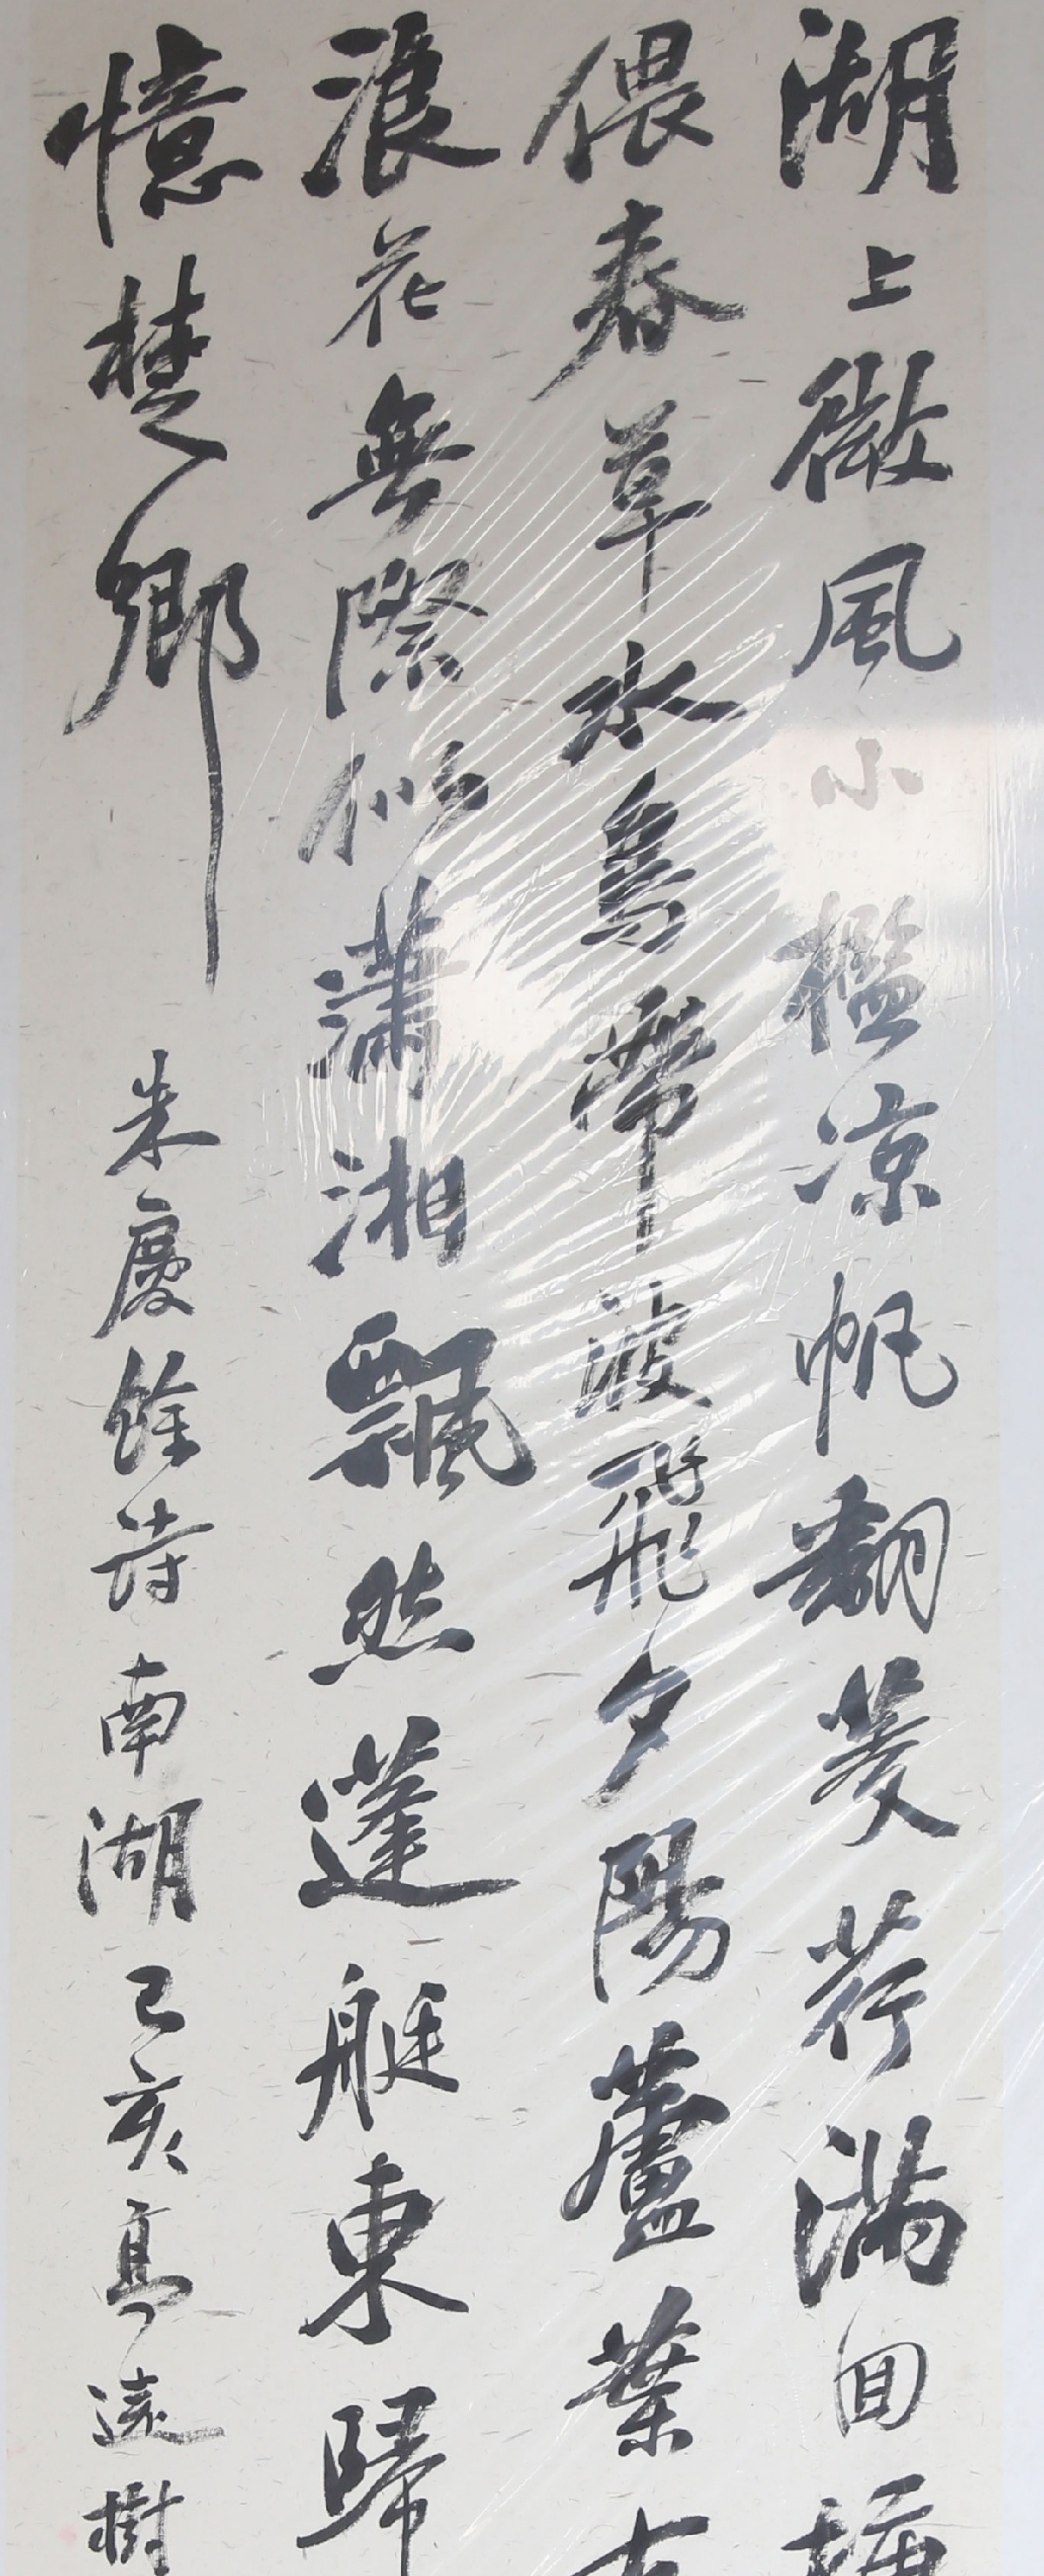 湖上微風小檻涼帆翻菱荇滿回塘
偎春草水鳥帶波飛夕陽蘆葉有
浪花無際似瀟湘飄然蓬艇東歸
憶楚鄉 朱慶餘詩南湖己亥高遠樹